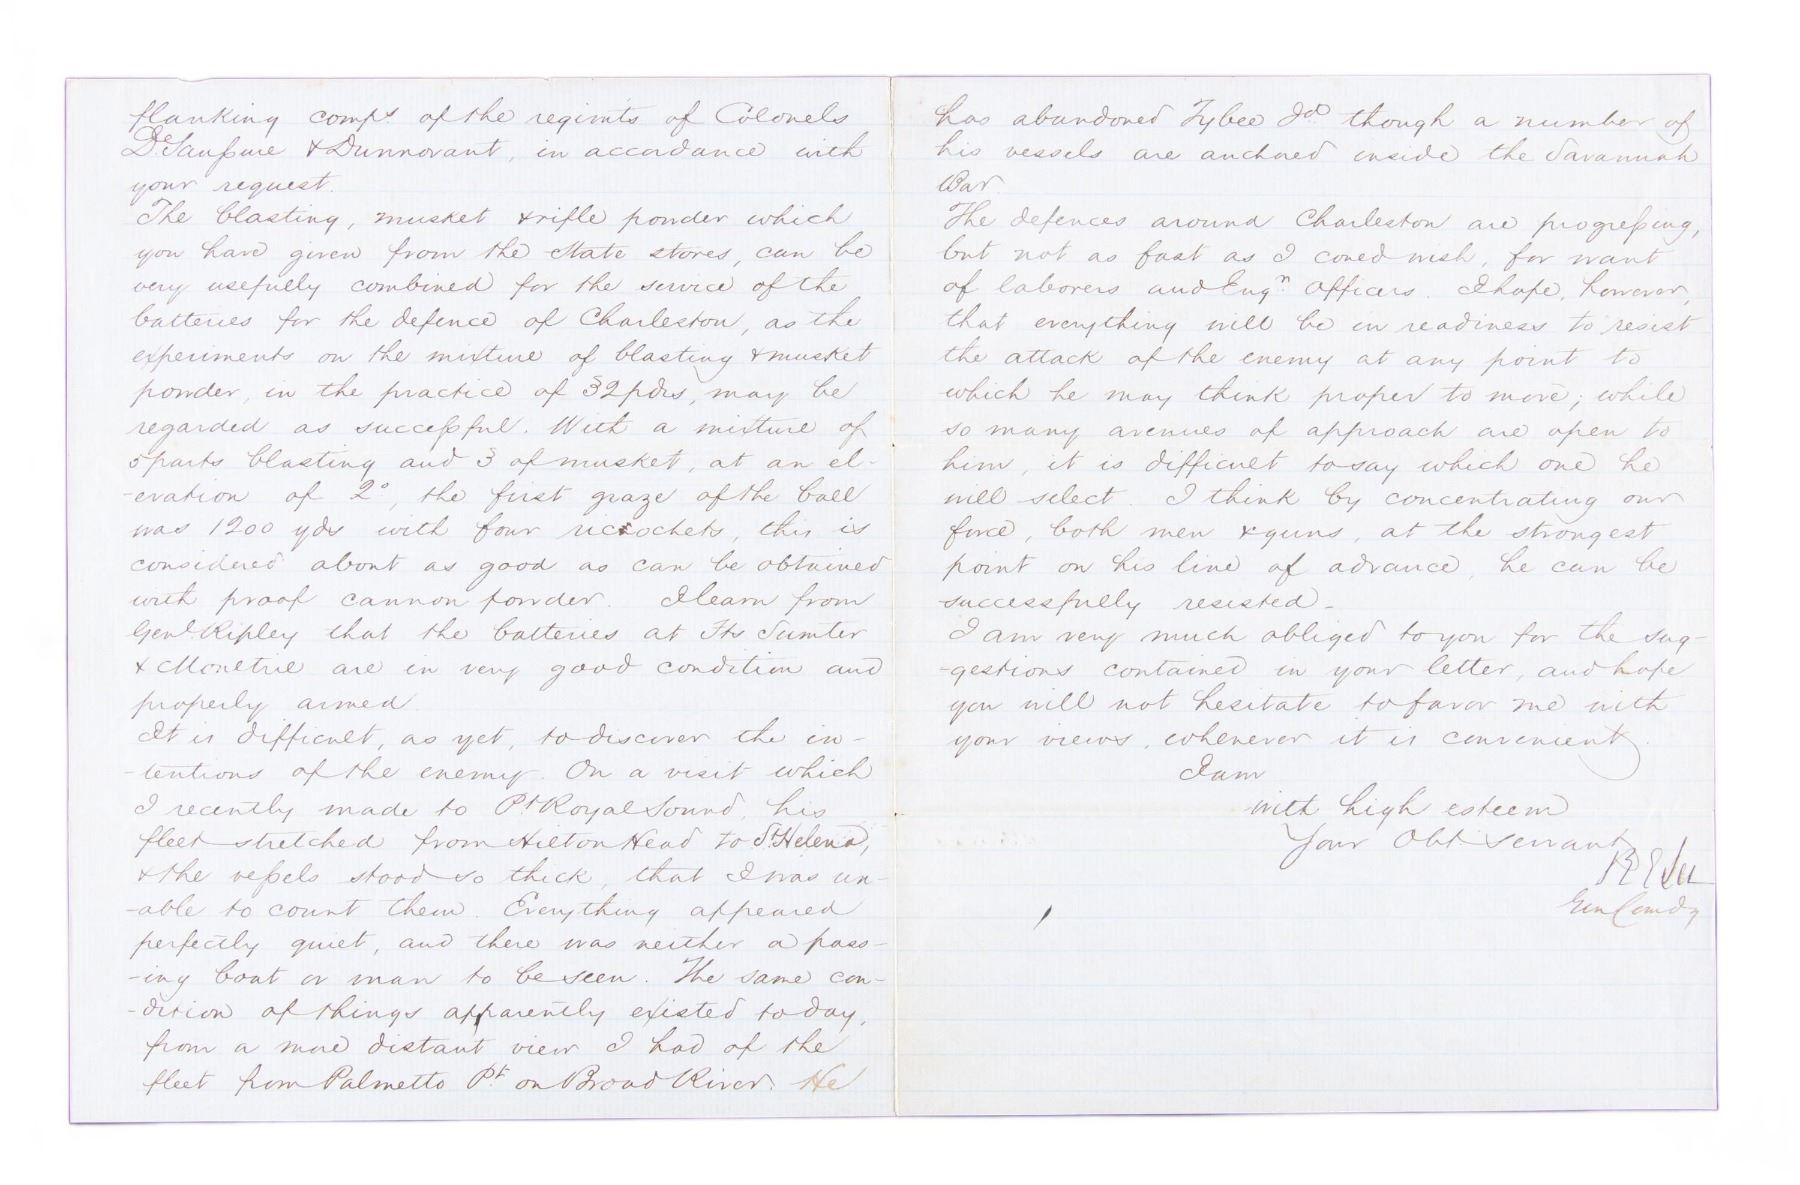 flanking comps. of the regimts of Colonels
DeSaussure & Dunnovant, in accordance with
your request.
The blasting, musket & rifle powder which
you have given from the State stores, can be
very usefully combined for the service of the
batteries for the defence of Charleston, as the
experiments on the mixture of blasting & musket
powder, in the practice of 32 pdrs, may be
regarded as successful. With a mixture of
5 parts blasting and 3 of musket, at an el-
-evation of 2°, the first graze of the ball
was 1200 yds with four ricochets, this is
considered about as good as can be obtained
with proof cannon powder. I learn from
Genl Ripley that the batteries at Fts Sumter
& Moultrie are in very good condition and
properly armed.
It is difficult, as yet, to discover the in-
-tentions of the enemy. On a visit which
I recently made to Pt Royal Sound, his
fleet stretched from Hilton Head to St. Helena,
& the vessels stood so thick, that I was un-
-able to count them. Everything appeared
perfectly quiet, and there was neither a pass-
-ing boat or man to be seen. The same con-
-dition of things apparently existed to day,
from a more distant view I had of the
fleet from Palmetto Pt. on Broad River. He
has abandoned Tybee Id though a number of
his vessels are anchored inside the Savannah
Bar.
The defences around Charleston are progressing,
but not as fast as I could wish, for want
of laborers and Engn Officers. I hope, however,
that everything will be in readiness to resist
the attack of the enemy at any point to
which he may think proper to move; while
so many avenues of approach are open to
him, it is difficult to say which one he
will select. I think by concentrating our
force, both men & guns, at the strongest
point on his line of advance, he can be
successfully resisted -
I am very much obliged to you for the sug-
-gestions contained in your letter, and hope
you will not hesitate to favor me with
your views, whenever it is convenient.
I am
with high esteem
Your Obt Servant
R E Lee
Gen Comdg